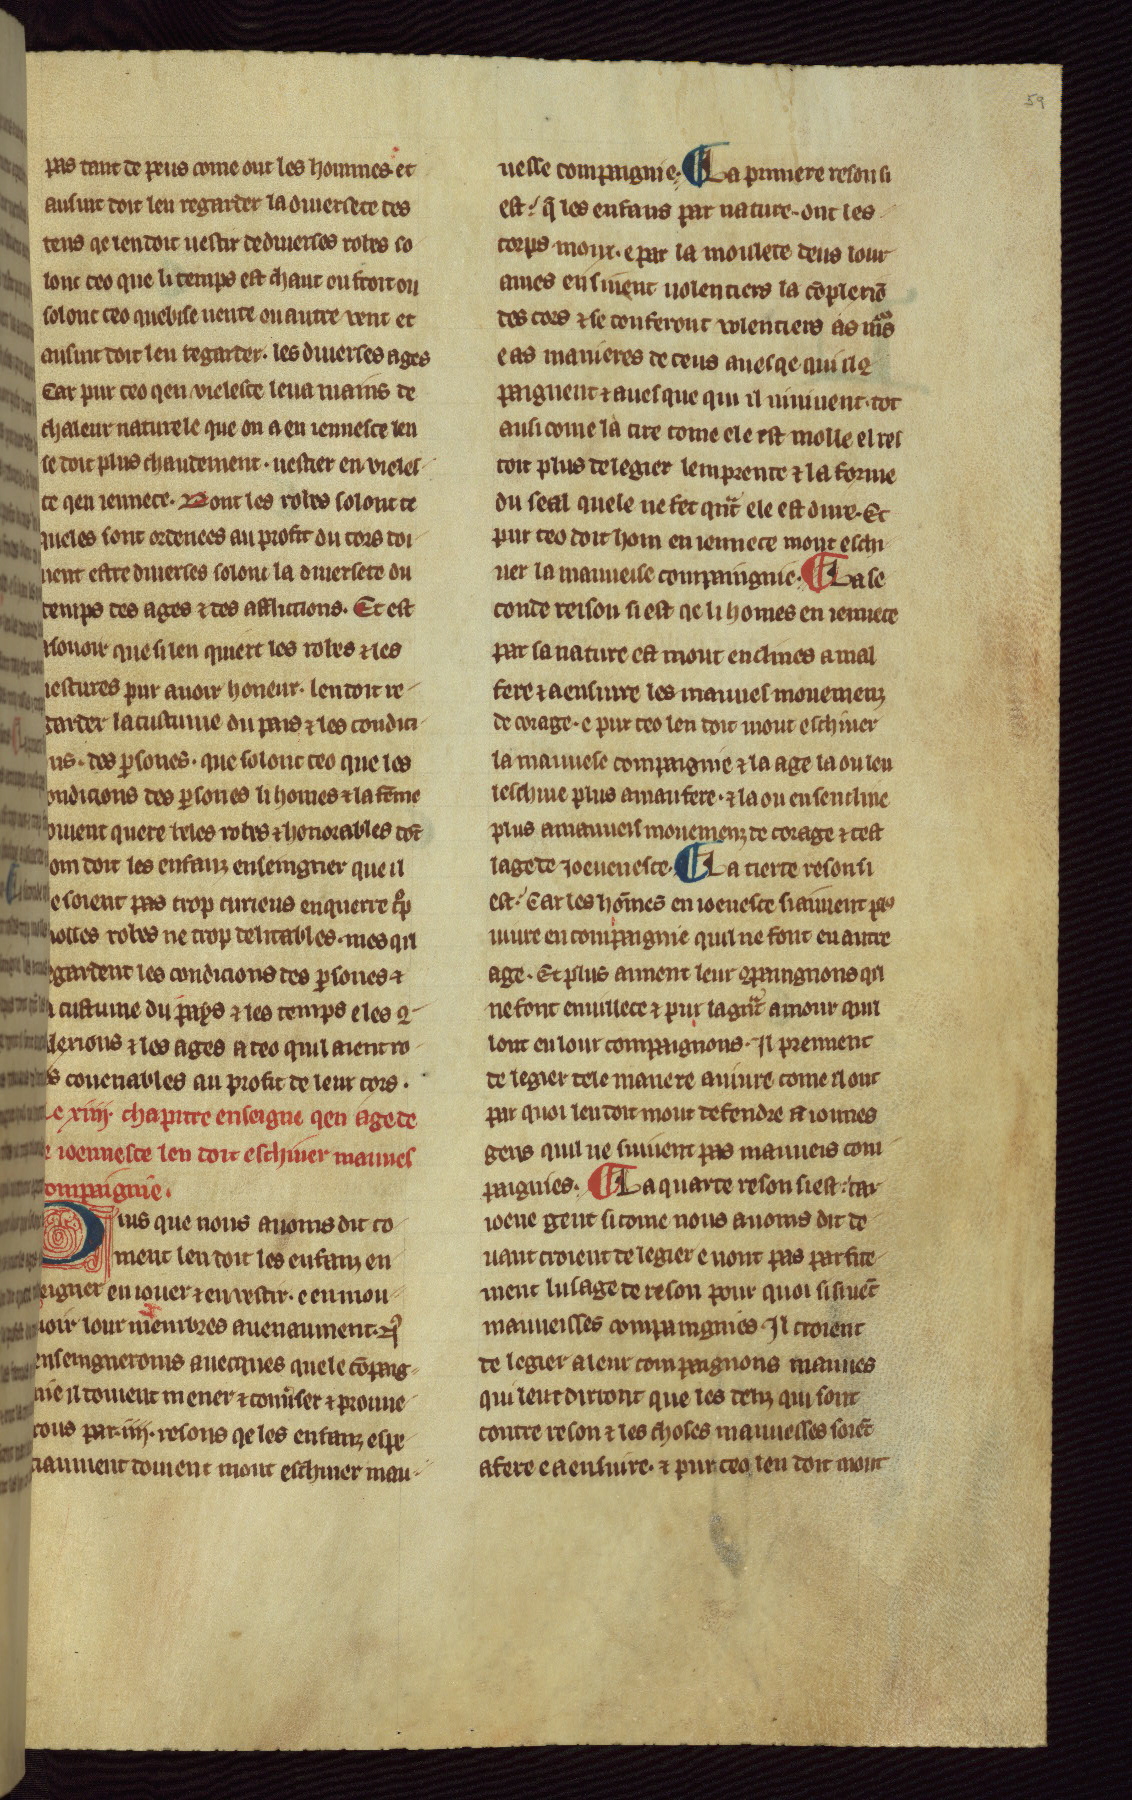 59
pas tant de peus come ont les hommes et
ausint doit len regarder la diuersete des
tens qe len doit uestir de diuerses robes so
lonc ceo que li temps est chaut ou froit ou
solonc ceo que bise uente ou autre vent et
ausint doit len regarder. les diuerses ages
Car pur ceo qen vielesce len a mains de
chaleur naturele que on a en iennesce len
se doit plus chaudement. uestier en vieles
ce qen iennece. Dont les robes solonc ce
queles sont ordenees au profit du cors doi
uent estre diuerses solonc la diuersete du
temps des ages ⁊ des afflictions. Et est
asouoir que si len quiert les robes ⁊ les
uestures pur auoir honeur. len doit re
garder la custume du pais ⁊ les condici
ns. des p̱sones. que solonc ceo que les
ondicions des p̱sones li homes ⁊ la fēme
oiuent quere teles robes ⁊ honorables dōt
om doit les enfanz enseingner que il
e soient pas trop curieus en querre t͛p
olles robes ne trop delitables. mes qil
egardent les condicions des p̱sones ⁊
a custume du pays ⁊ les temps e les ꝯ
lexions ⁊ les ages a ceo quil aient ro
s couenables au profit de leur cors.
Le xiiij. chapitre enseigne qen age de
e ioennesce len doit eschiuer mauues
ompaignie.
Puis que nous auoms dit co
ment len doit les enfanz en
eigner en iouer ⁊ en vestir. e en mou
uoir lour membres auenaument. n͛
enseingneroms auecques quele cōpaig
nie il doiuent mener ⁊ conu͛ser ⁊ prouue
rous par. iiij. resons qe les enfanz espe
ciaument doiuent mout eschiuer mau
uesse compaignie. La primere reson si
est. q̄ les enfans par nature. ont les
corps mout. e par la moulete deus lour
ames ensiuent uolentiers la cōplexiō
des cors ⁊ se conferont volentiers as mʳs
e as manieres de ceus auesqe qui il ꝯ
paignent ⁊ auesque qui il uiuent. tot
ausi come la cire come ele est molle el res
coit plus de legier lemprente ⁊ la forme
du seal quele ne fet qnͣt ele est dure. Et
pur ceo doit hom en iennece mout eschi
uer la mauueise compaingnie. La se
conde reison si est qe li homes en iennece
par sa nature est mout enclines a mal
fere ⁊ a ensiure les mauues mouemenz
de corage. e pur ceo len doit mout eschiuer
la mauuese compaignie ⁊ la age la ou len
ieschiue plus a maufere. ⁊ la ou en sencline
plus a mauueis mouemenz de corage ⁊ cest
lage de joeuenesce. La tierce reson si
est. Car les hōmes en ioenesce si aiment pas
uiure en compaignie quil ne font en autre
age. Et plus aiment leur ꝯpaingnons qil
ne font en uillece ⁊ pur la gnͣt amour quil
lont en lour compaignons. Il prennent
de legier tele manere a uiure come il ont
par quoi len doit mout defendre a iounes
gens quil ne siuuent pas mauueis com
paignies. La quarte reson si est. car
ioene gent si come nous auoms dit de
uant croient de legier e nont pas parfite
ment lusage de reson pour quoi si siuēt
mauueisses compaingnies. Il croient
de legier a leur compaignons mauues
qui leur dirront que les deliz qui sont
contre reson ⁊ les choses mauuesses soiēt
a fere e a ensiure. ⁊ pur ceo len doit mout